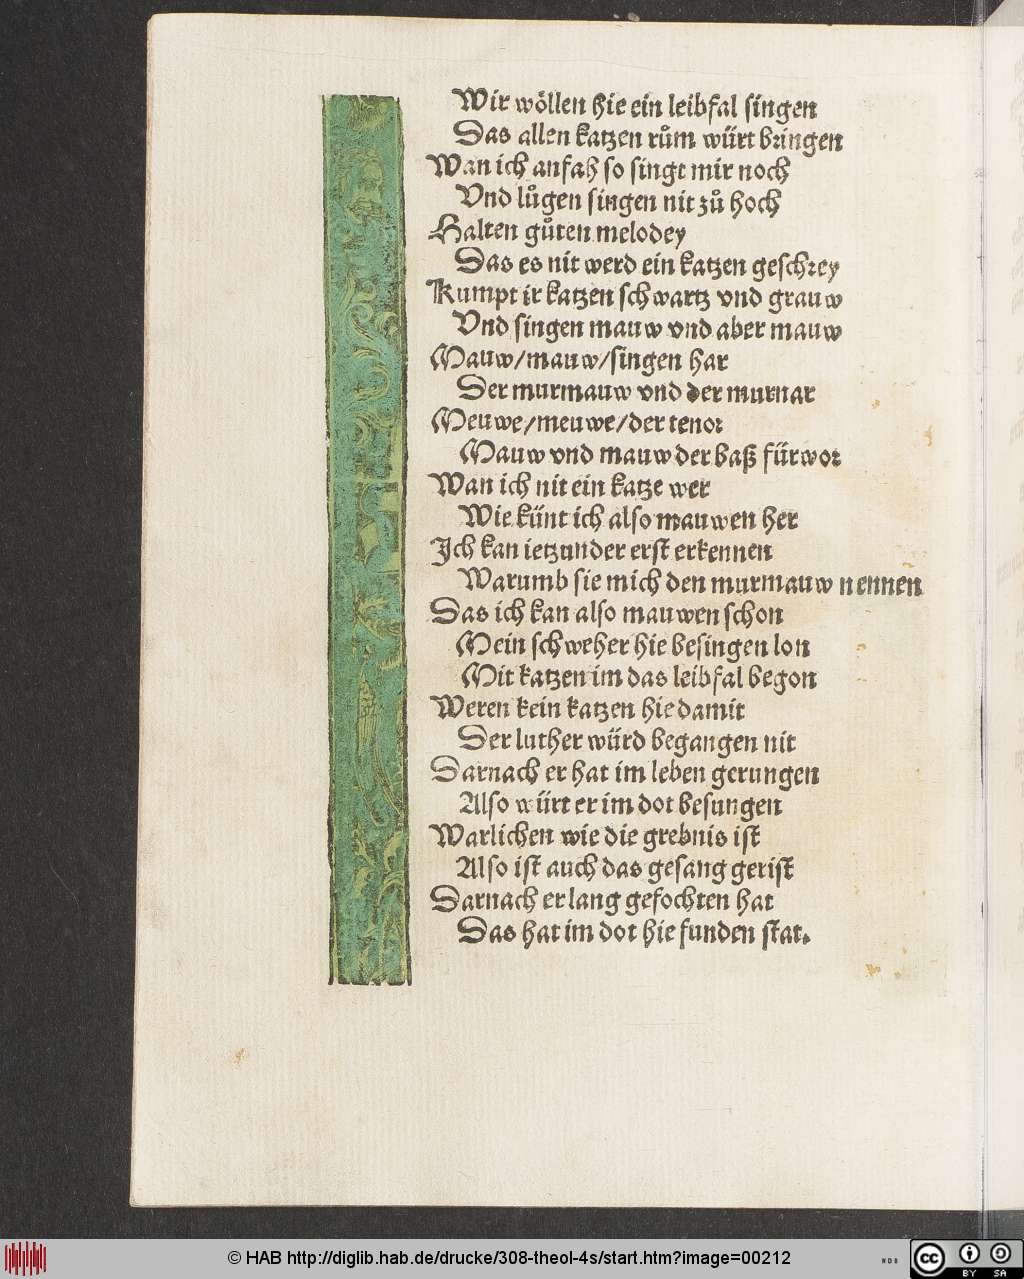 Wir wöllen hie ein leibfal singen
Das allen katzen rům würt bringen
Wan ich anfah so singt mir noch
Vnd lůgen singen nit zů hoch
Halten gůten melodey
Das es nit werd ein katzen geschrey
Kumpt ir katzen schwartz vnd grauw
Vnd singen mauw vnd aber mauw
Mauw/mauw/singen har
Der murmauw vnd der murnar
Meuwe/meuwe/der tenor
Mauw vnd mauw der baß fürwor
Wan ich nit ein katze wer
Wie künt ich also mauwen her
Ich kan ietzunder erst erkennen
Warumb sie mich den murmauw nennen
Das ich kan also mauwen schon
Mein schweher hie besingen lon
Mit katzen im das leibfal begon
Weren kein katzen hie damit
Der luther würd begangen nit
Darnach er hat im leben gerungen
Also würt er im dot besungen
Warlichen wie die grebnis ist
Also ist auch das gesang gerist
Darnach er lang gefochten hat
Das hat im dot hie funden stat.
© HAB http://diglib.hab.de/drucke/308-theol-4s/start.htm?image=00212
WDB
cc BY SA